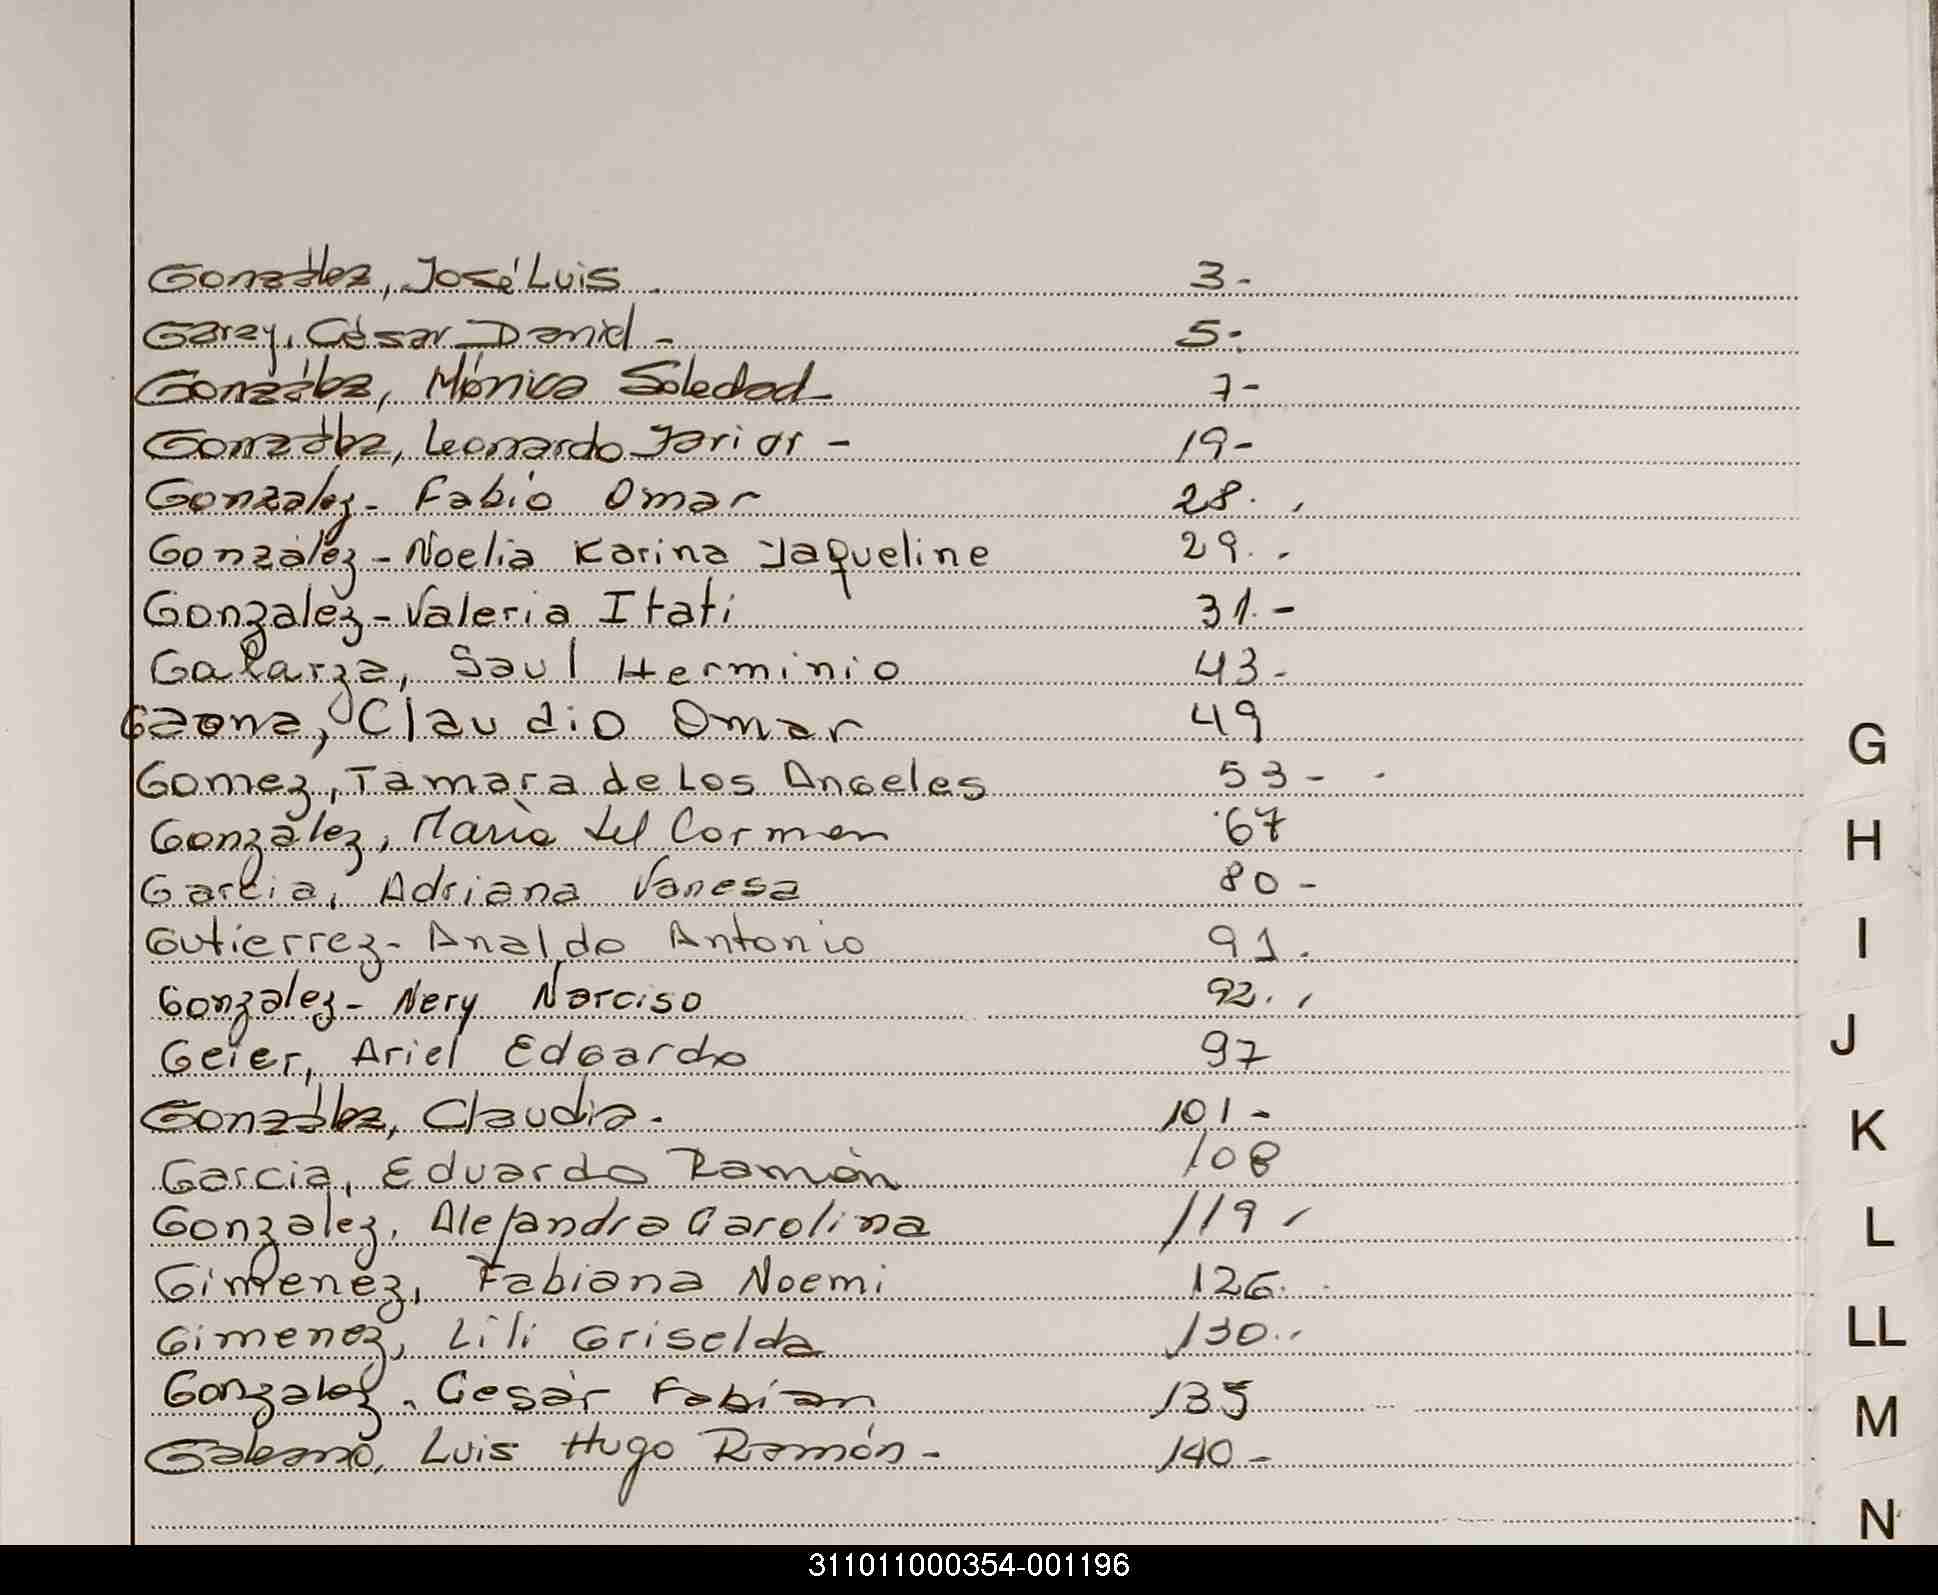 González, José Luis 3-
Garay, César Daniel - 5-
González, Mónica Soledad 7-
González, Leonardo Javier - 19-
Gonzalez- Fabio Omar 28.
Gonzàlez- Noelia Karina Jaqueline 29.-
Gonzalez- Valeria Itati 31.-
Galarza, Saul Herminio 43-
Gaona, Claudio Omar 49
Gomez, Tamara de Los Angeles 53-
González, Maria del Carmen 67
Garcia, Adriana Vanesa 80-
Gutierrez- Analdo Antonio 91.
Gonzalez- Nery Narciso 92.
Geier, Ariel Edgardo 97
González, Claudia. 101-
Garcia, Eduardo Ramón 108
Gonzalez, Alejandra Carolina 119
Gimenez, Fabiana Noemi 126.
Gimenez, Lili Griselda 130.
Gonzalez, Cesar Fabian 135
Galeano, Luis Hugo Ramón- 140-
G
H
I
J
K
L
LL
M
N
311011000354-001196